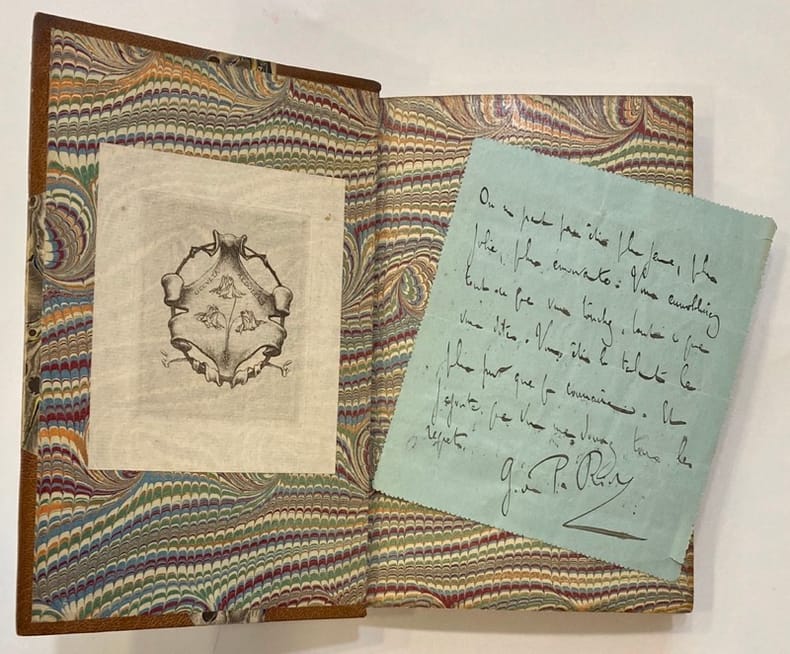 On ne peut pas être plus jeune, plus
jolie, plus émouvante. Vous ennoblissez
tout ce que vous touchez, tout ce que
vous dites. Vous êtes le talent le
plus pur que je connaisse. Et
j'ajoute que vous me donnez tous les
respects.
G. de